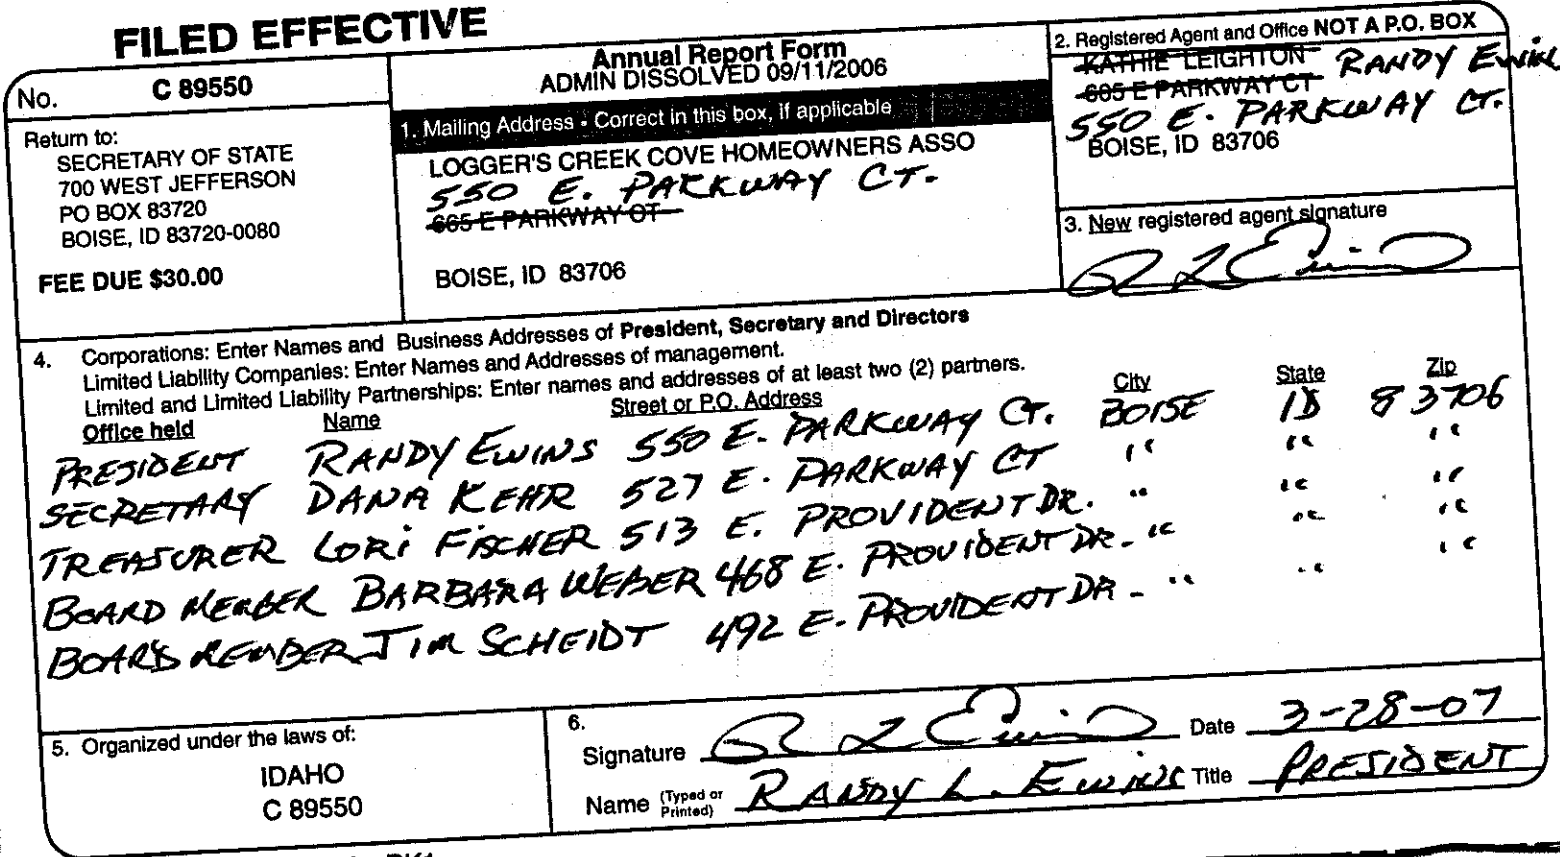 FILED EFFECTIVE
No. C 89550
Return to:
SECRETARY OF STATE
700 WEST JEFFERSON
PO BOX 83720
BOISE, ID 83720-0080
FEE DUE $30.00
Annual Report Form
ADMIN DISSOLVED 09/11/2006
1. Mailing Address - Correct in this box, if applicable
LOGGER'S CREEK COVE HOMEOWNERS ASSO
550 E. PARKWAY CT.
665 E PARKWAY CT
BOISE, ID 83706
2. Registered Agent and Office NOT A P.O. BOX
KATHIE LEIGHTON RANDY EWINS
665 E PARKWAY CT
550 E. PARKWAY CT.
BOISE, ID 83706
3. New registered agent signature
4. Corporations: Enter Names and Business Addresses of President, Secretary and Directors
Limited Liability Companies: Enter Names and Addresses of management.
Limited and Limited Liability Partnerships: Enter names and addresses of at least two (2) partners.
Office held Name Street or P.O. Address City State Zip
PRESIDENT RANDY EWINS 550 E. PARKWAY CT. BOISE ID 83706
SECRETARY DANA KEHR 527 E. PARKWAY CT " " "
TREASURER LORI FISCHER 513 E. PROVIDENT DR. " " "
BOARD MEMBER BARBARA WEBER 468 E. PROVIDENT DR. " " "
BOARD MEMBER JIM SCHEIDT 492 E. PROVIDENT DR. " " "
5. Organized under the laws of:
IDAHO
C 89550
6.
Signature Date 3-28-07
Name (Typed or Printed) RANDY L. EWINS Title PRESIDENT